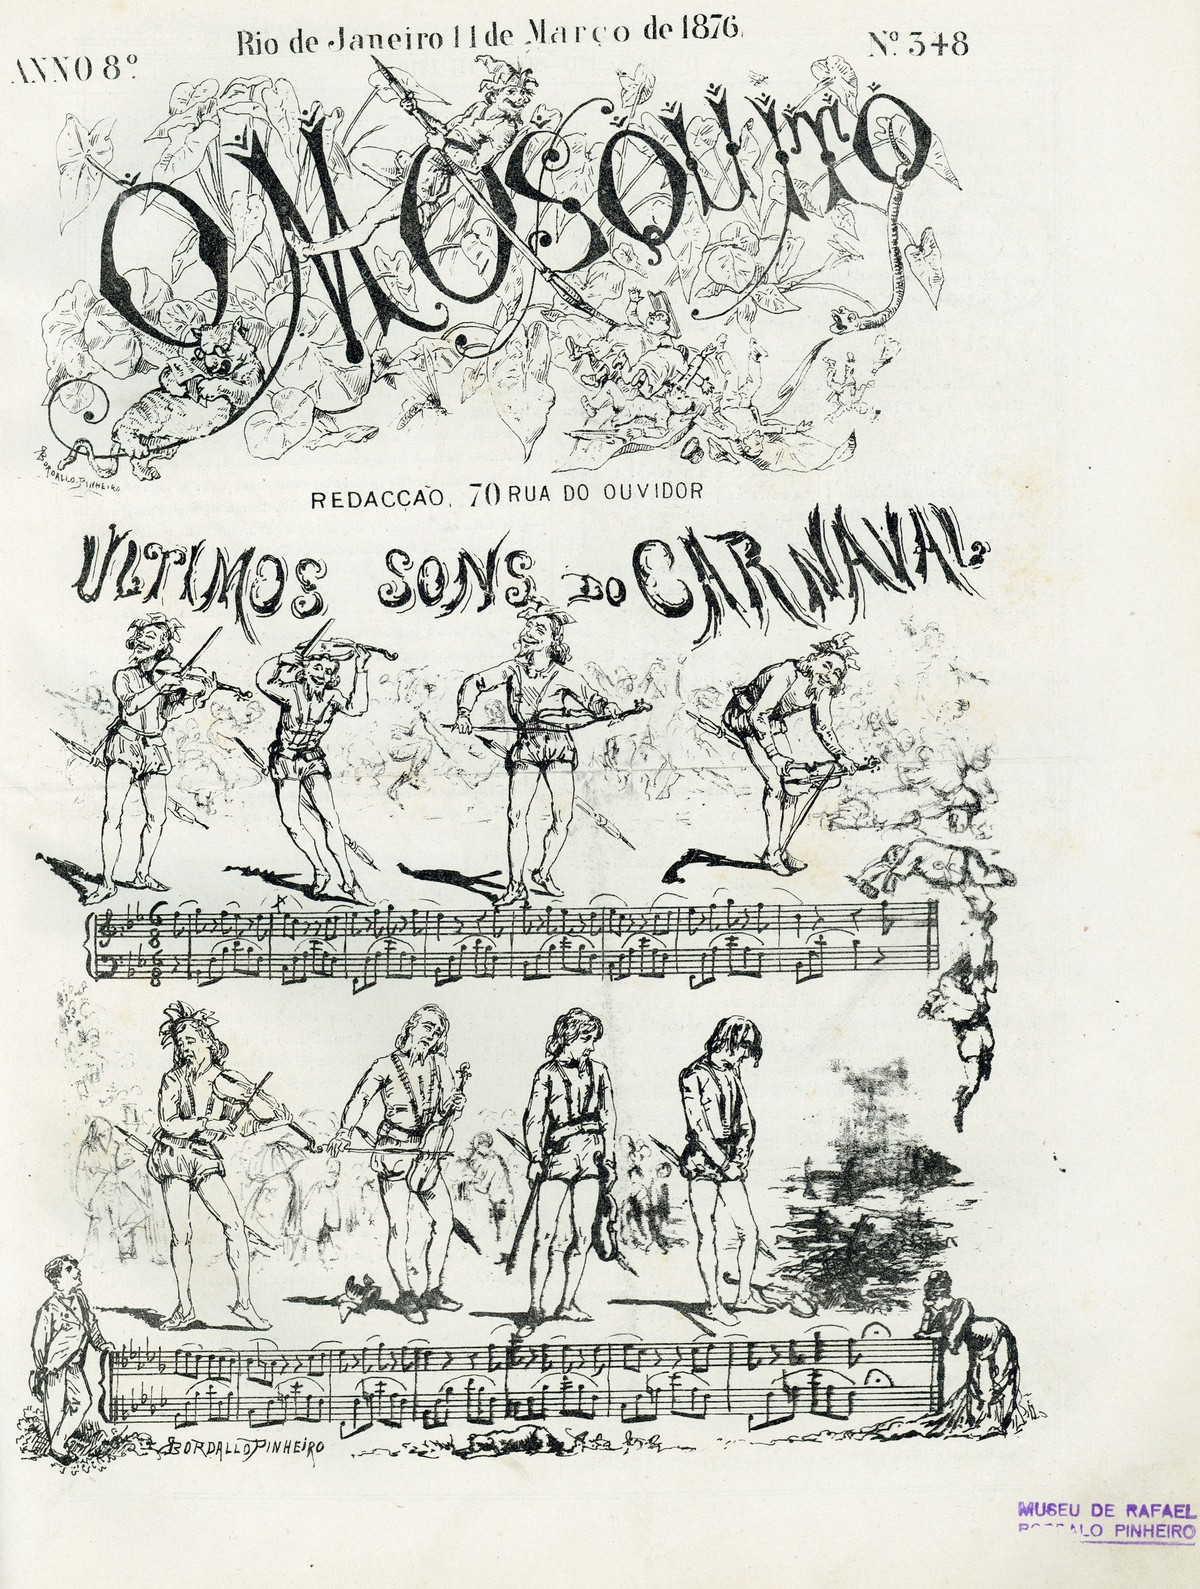 Rio de Janeiro 11 de Março de 1876.
ANNO 8º
Nº. 348
O MOSQUITO
BORDALLO PINHEIRO
REDACÇÃO, 70 RUA DO OUVIDOR
ULTIMOS SONS DO CARNAVAL
BORDALLO PINHEIRO
MUSEU DE RAFAEL
BORDALO PINHEIRO